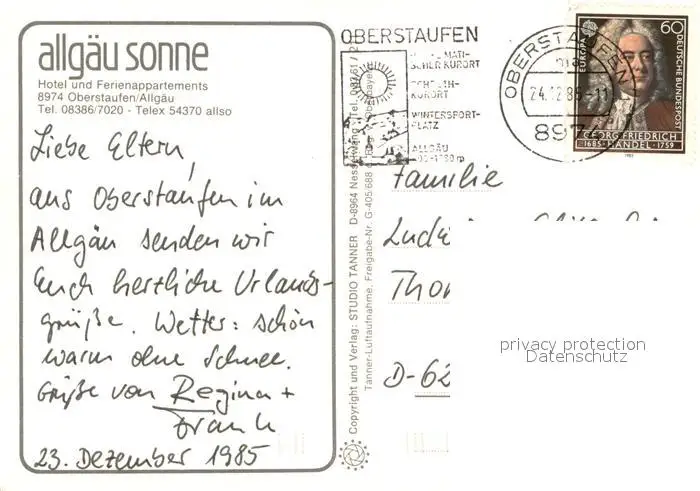 allgäu sonne
Hotel und Ferienappartements
8974 Oberstaufen/Allgäu
Tel. 08386/7020 - Telex 54370 allso
Liebe Eltern,
aus Oberstaufen im
Allgäu senden wir
Euch herzliche Urlaubs-
grüße. Wetter: schön
warm ohne Schnee.
Grüße von Regina +
Frank
23. Dezember 1985
Copyright und Verlag: STUDIO TANNER D-8964 Nesselwang Tel.
Tanner-Luftaufnahme, Freigabe-Nr. G-405/688
OBERSTAUFEN
SCHROTH-
KURORT
WINTERSPORT-
PLATZ
ALLGÄU
OBERSTAUFEN
24.12.85-11
897
EUROPA
60
DEUTSCHE BUNDESPOST
GEORG FRIEDRICH
1685 HÄNDEL 1759
1985
Familie
D-62
privacy protection
Datenschutz